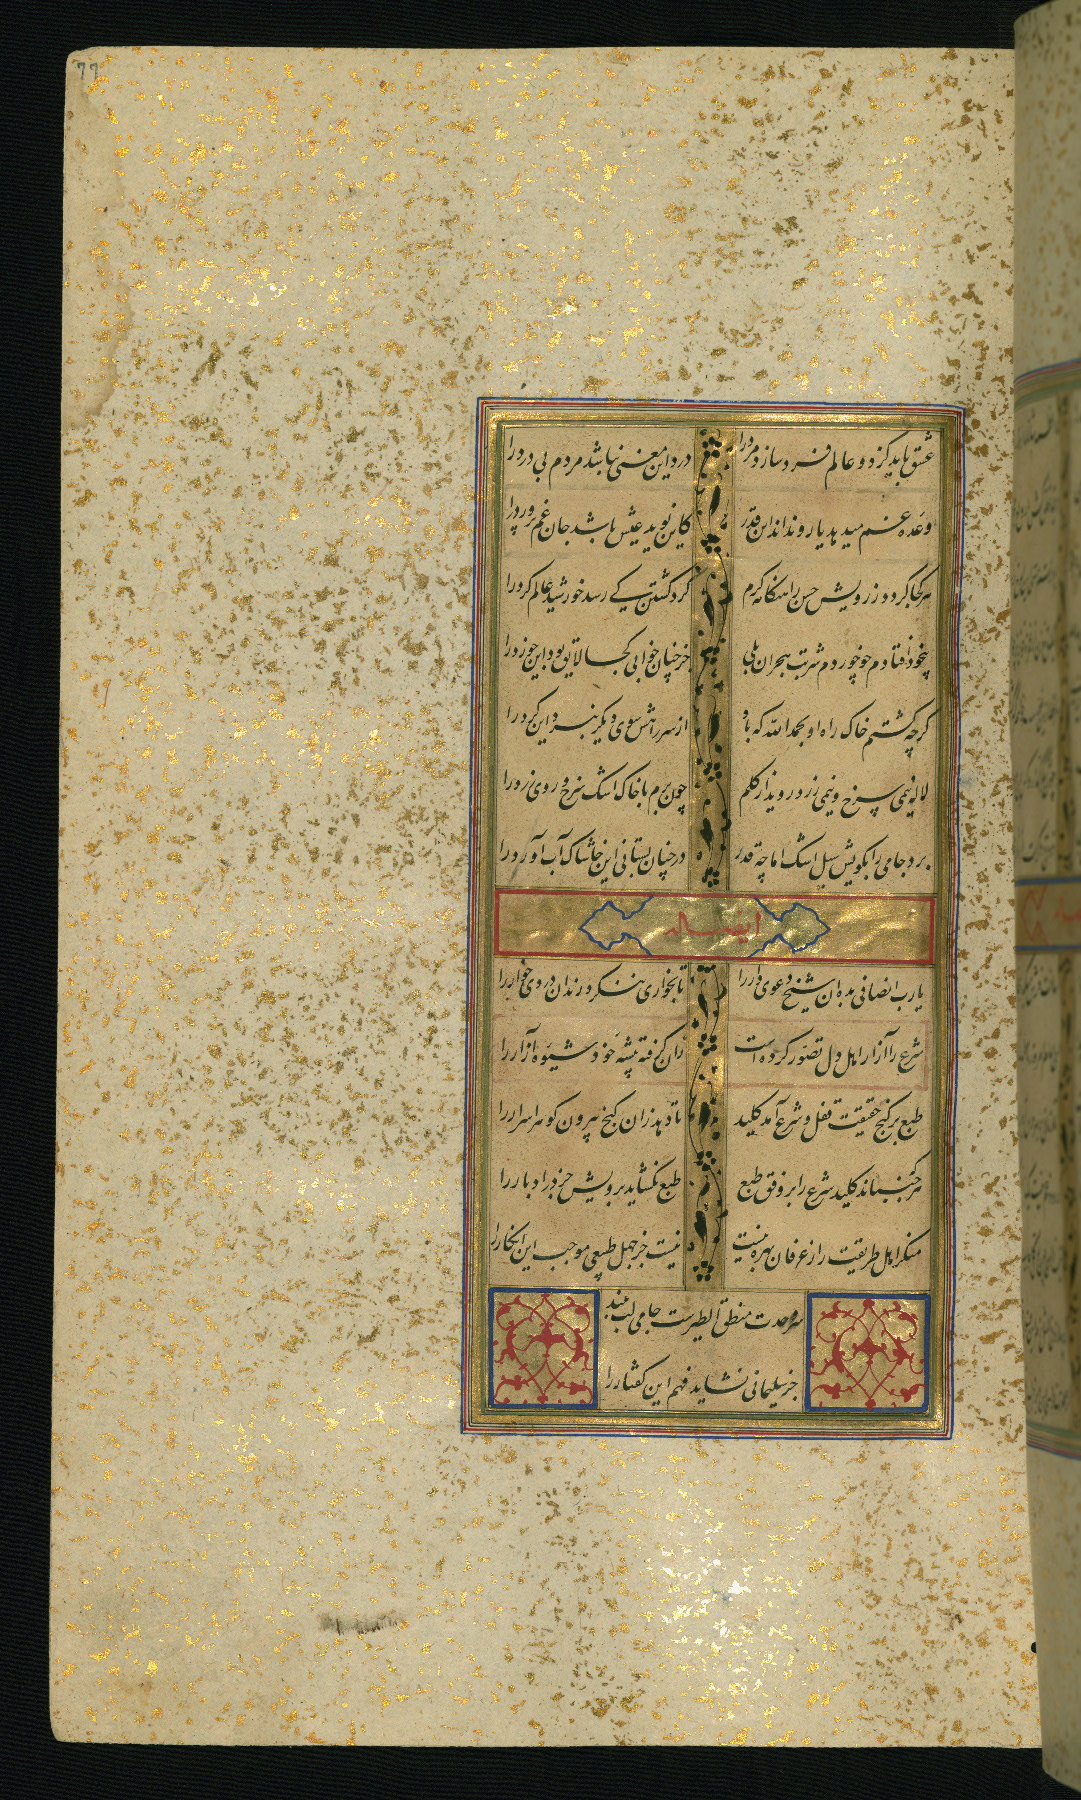 77
عشق باید کز دو عالم فرد سازد مرد را
درد این معنی نباشد مردم بی درد را
وعده غم میدهد یار و نداند این قدر
کاین نوید عیش باشد جان غم پرورد را
هر کجا کردد ز رویش حسن را هنکامه کرم
کرد کشتن کے رسد خورشید عالم کرد را
بیخود افتادم چو خوردم شربت هجران بلی
جز چنان خوابی کجا لایق بود این خورد را
کرچه کشتم خاک راه او بحمدالله که باد
از سر راهش سوی دیکر نبرد این کرد را
لاله نیمی سرخ و نیمی زرد روید از کلم
چون برم با خاک اشک سرخ و روی زرد را
برد جامی را بکویش سیل اشک اما چه قدر
در چنان بستانی این خاشاک آب آورد را
ایضا له
یا رب انصافی بده آن شیخ دعوی دار را
تا بخواری ننکرد رندان دردی خوار را
شرع را آزار اهل دل تصور کرده است
زان کرفته پیشه خود شیوه آزار را
طبع بر کنج حقیقت قفل و شرع آمد کلید
تا دهد زان کنج بیرون کوهر اسرار را
هر که جنباند کلید شرع را بر وفق طبع
طبع نکشاید برویش جز در ادبار را
منکر اهل طریقت را ز عرفان بهره نیست
نیست جز جهل طبیعی موجب این انکار را
سر وحدت منطق الطیرست جامی لب ببند
جز سلیمانی نشاید فهم این کفتار را